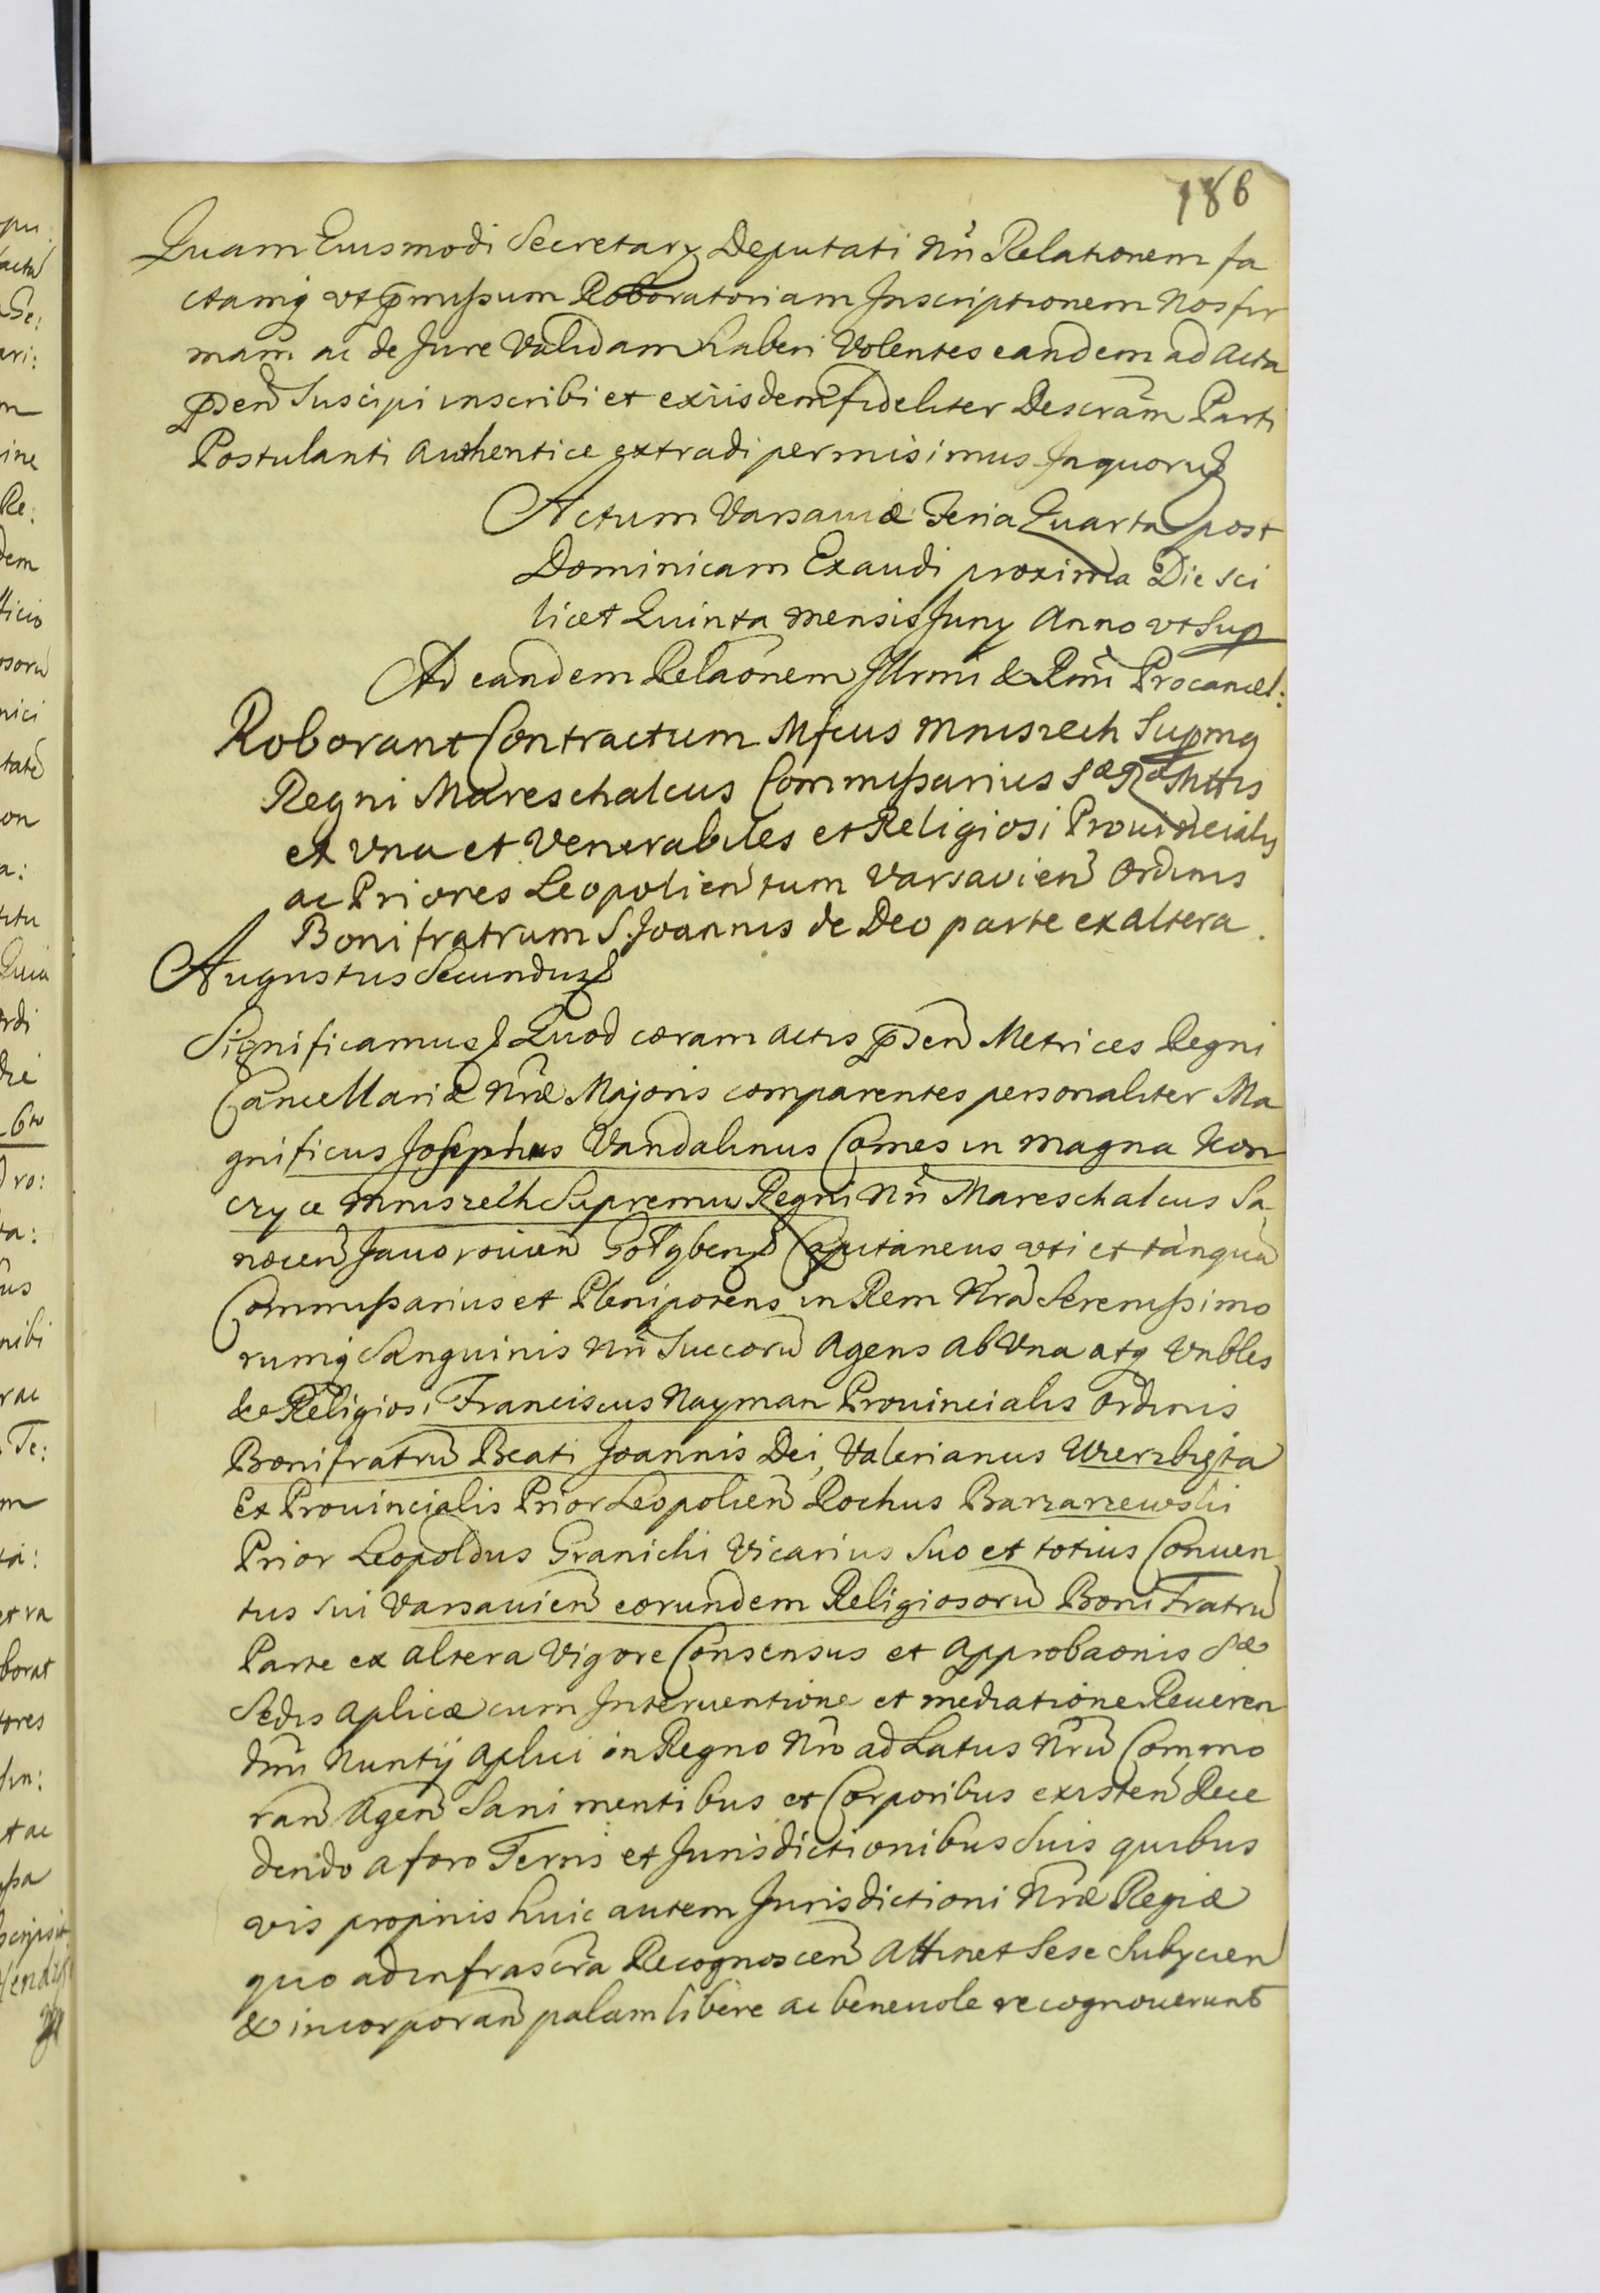 186
Quam Eiusmodi Secretary Deputati Nri Relationem fa
ctamq vt pmissum Roboratoriam Inscriptionem Nos fir
mam ac de Jure Validam haberi Volentes eandem ad Acta
pnsen Suscipi inscribi et exiisdem fideliter Descram Parti
Postulanti Authentice extradi permisimus In quoru
Actum Varsaviæ Feria Quarta post
Dominicam Exaudi proxima Die sci
licet Quinta mensis Juny Anno vt Sup
Ad eandem Relaonem Illrmi & Rmi Procancel:
Roborant Contractum Mfcus Mniszech Supmq
Regni Mareschalcus Commissarius S æ R æ Mttis
ex vna et Venerabiles et Religiosi Provincialis
ac Priores Leopolien tum Varsavien Ordinis
Bonifratrum S. Joannis de Deo parte ex altera.
Augustus Secundus
Significamus Quod coram actis pnsen Metrices Regni
Cancellariæ Nræ Majoris comparentes personaliter Ma
gnificus Josephus Vandalinus Comes in magna Kon
czyce Mniszech Supremus Regni Nri Mareschalcus Sa
nocen Javorovien Capitaneus vti et tanqua
Commissarius et Plenipotens in Rem Nra Serenissimo
rumq Sanguinis Nri Succoru Agens ab Vna atq Vnbles
ac Religiosi Franciscus Nayman Provincialis Ordinis
Bonifratru Beati Joannis Dei, Valerianus Wierzbięta
Ex Provincialis Prior Leopolien Rochus Barzarzewski
Prior Leopoldus Granichi Vicarius Suo et totius Conven
tus sui Varsavien eorundem Religiosoru Boni Fratru
Parte ex altera Vigore Consensus et Approbaonis S æ
Sedis Aplicæ cum Interventione et mediatione Reveren
dmi Nuntij Aplici in Regno Nro ad Latus Nru Commo
ran Agen Sani mentibus et Corporibus existen Rece
dendo a foro Terris et Jurisdictionibus Suis quibus
vis proprijs huic autem Jurisdictioni Nræ Regiæ
quo ad infrascra Recognoscen Attinet Sese Subycien
& incorporan palam libere ac benevole recognoverunt